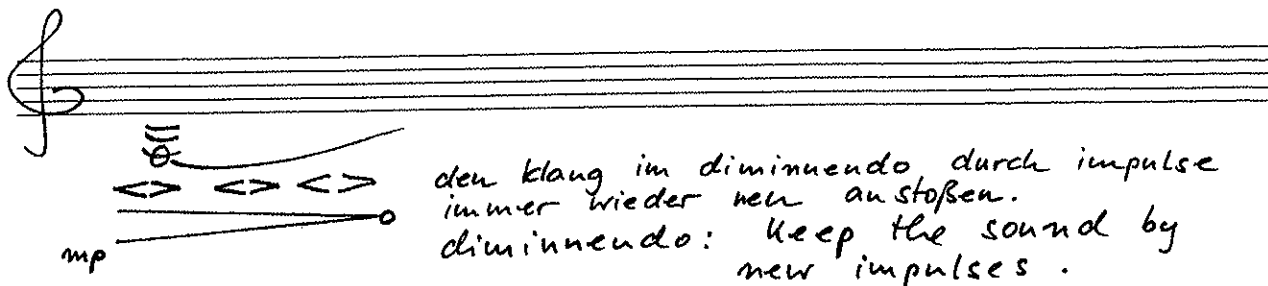 mp
den klang im diminuendo durch impulse
immer wieder neu anstoßen.
diminuendo: Keep the sound by
new impulses.